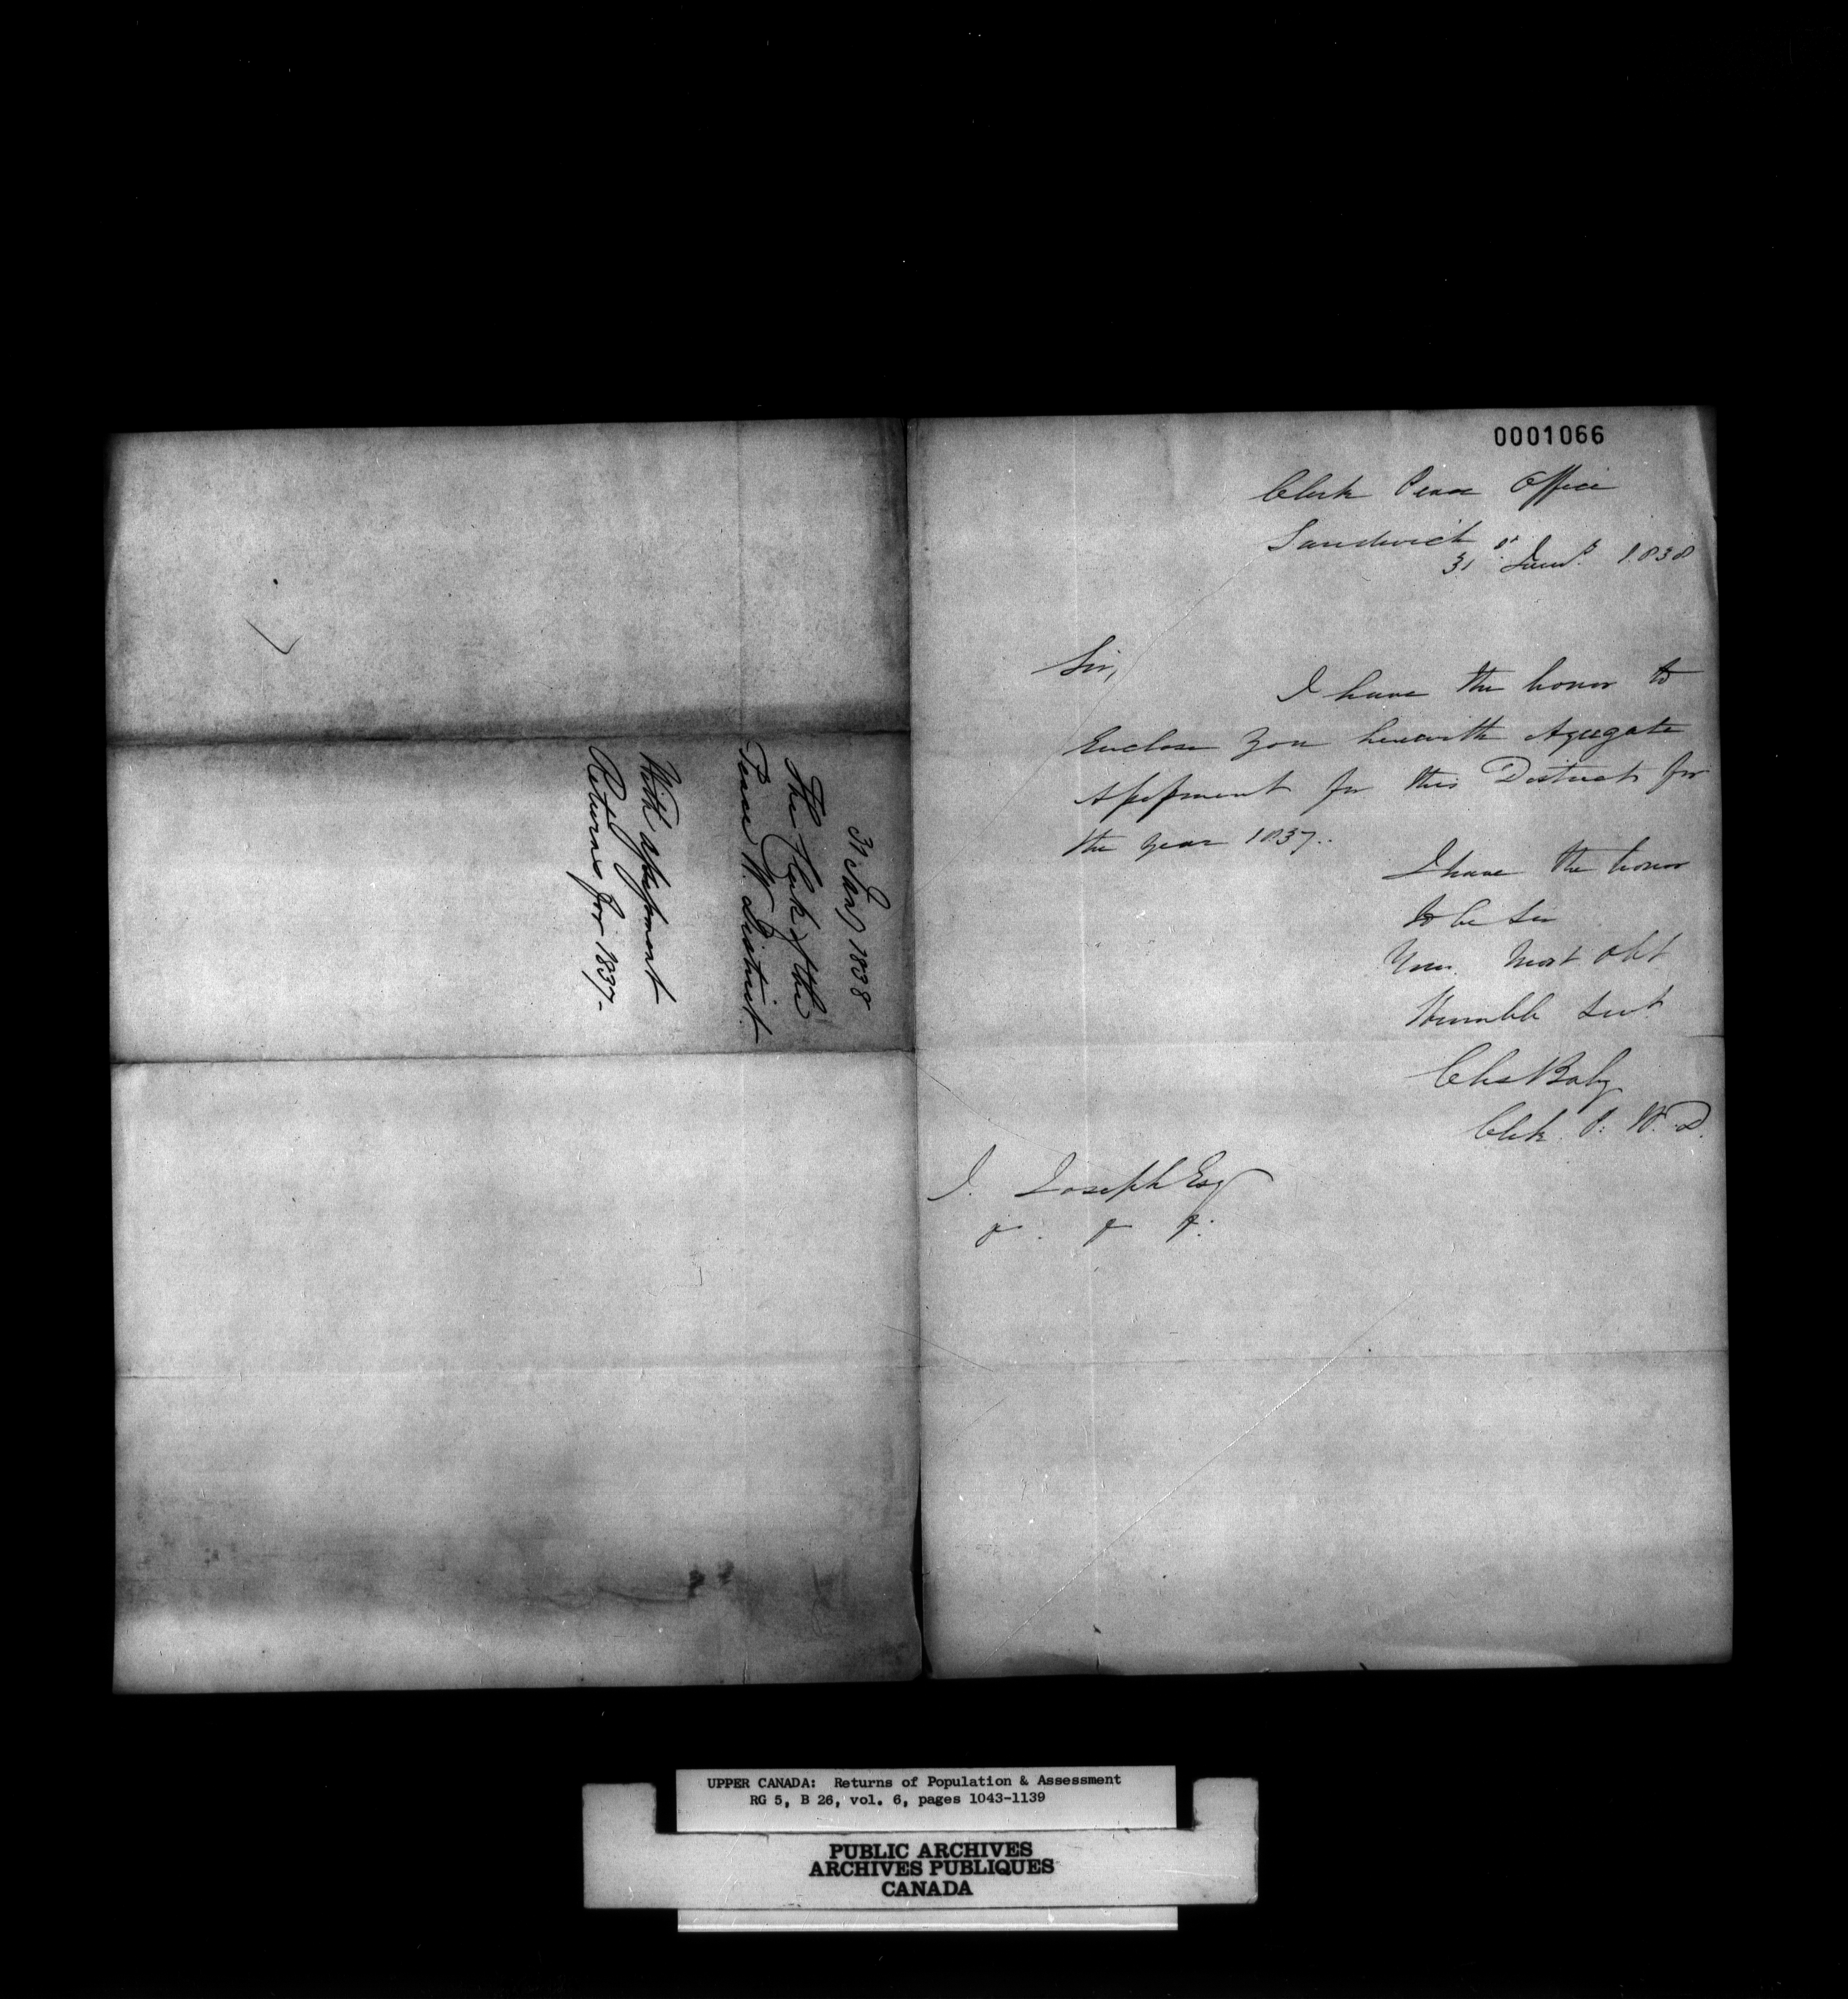 31 Jany 1838
The Clerk of the
Peace W. District.
With Assessment
Returns for 1837-
0001066
Clerk Peace Office
Sandwich
31st Jany. 1838
Sir,
I have the honor to
Enclose you herewith Agregate
Assessment for this District for
the year 1837..
I have the honor
to be Sir
Your Most Obt
Humble Servt
Chs Baby
Clk. P. W. D.
J. Joseph Esq
&. & &.
UPPER CANADA: Returns of Population & Assessment
RG 5, B 26, vol. 6, pages 1043-1139
PUBLIC ARCHIVES
ARCHIVES PUBLIQUES
CANADA